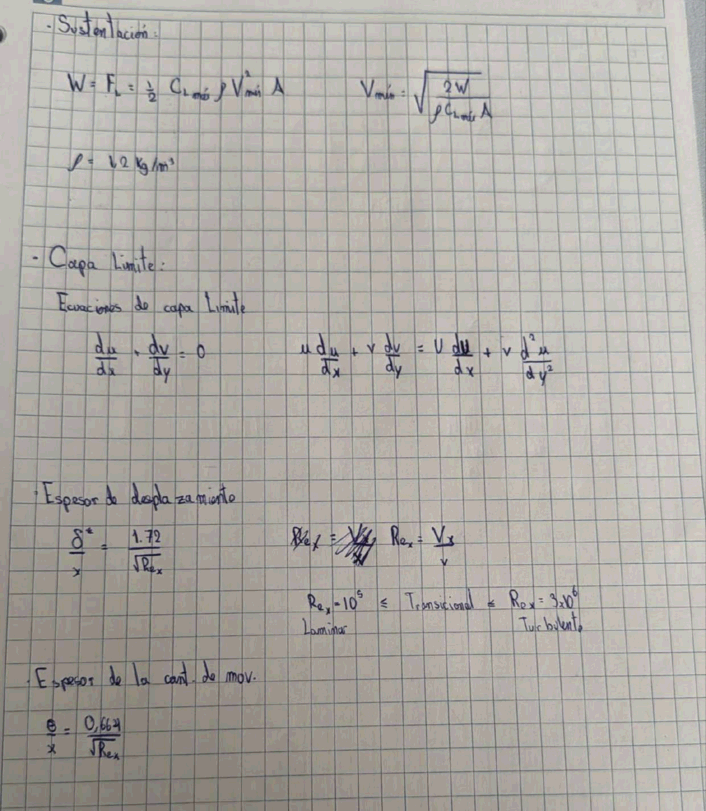 - Sustentación:
W = F_L = 1/2 C_Lmáx ρ V²mín A    Vmín = √(2W / ρ C_Lmáx A)
ρ = 1.2 kg/m³
- Capa Limite:
Ecuaciones de capa Limite
du/dx + dv/dy = 0    u du/dx + v dv/dy = U dU/dx + ν d²u/dy²
· Espesor de desplazamiento
δ*/x = 1.72/√Re_x    Re_x = Vx/ν
Re_x = 10⁵ ≤ Transicional ≤ Re_x = 3x10⁶
Laminar    Turbulento
· Espesor de la cant. de mov.
θ/x = 0,664/√Re_x